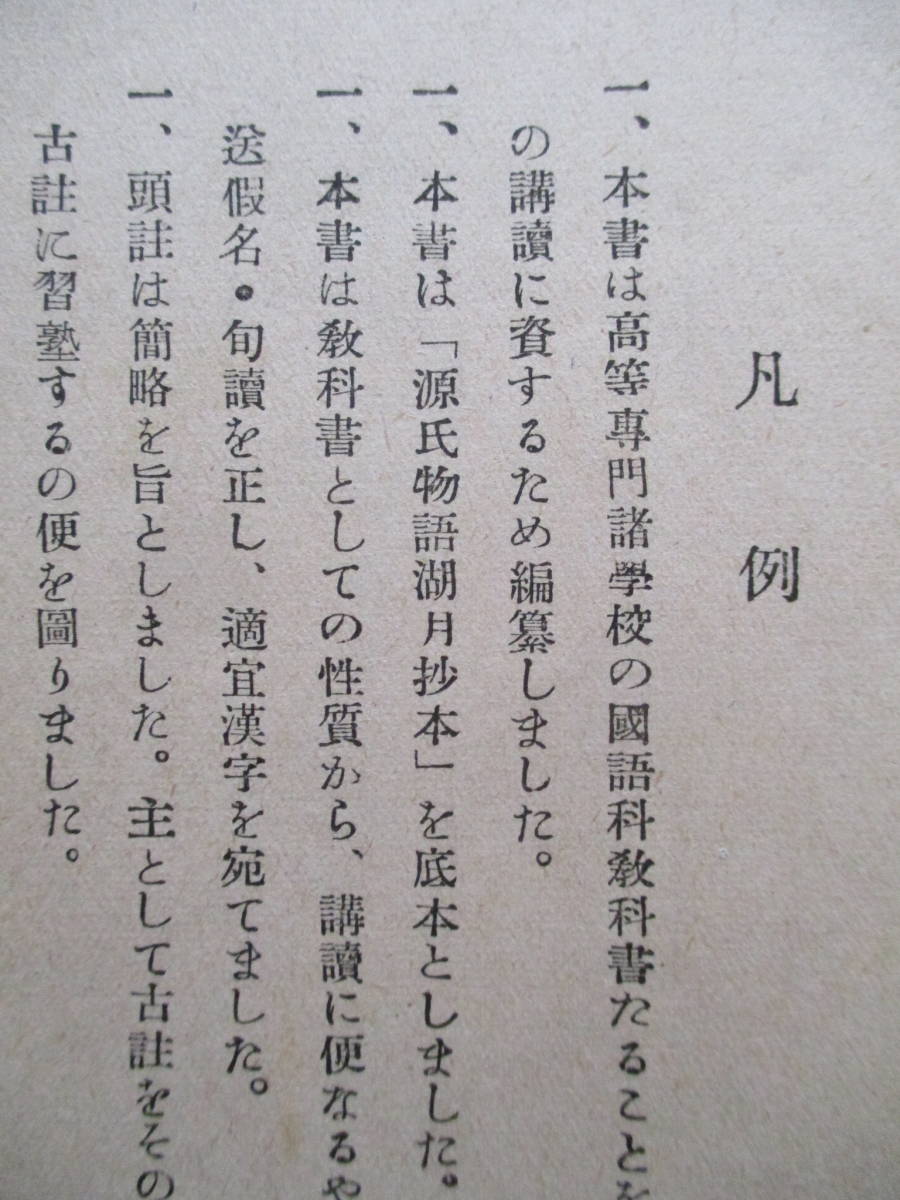 凡例
一、本書は高等專門諸學校の國語科敎科書たることを
の講讀に資するため編纂しました。
一、本書は「源氏物語湖月抄本」を底本としました。
一、本書は敎科書としての性質から、講讀に便なるや
送假名・旬讀を正し、適宜漢字を宛てました。
一、頭註は簡略を旨としました。主として古註をその
古註に習塾するの便を圖りました。